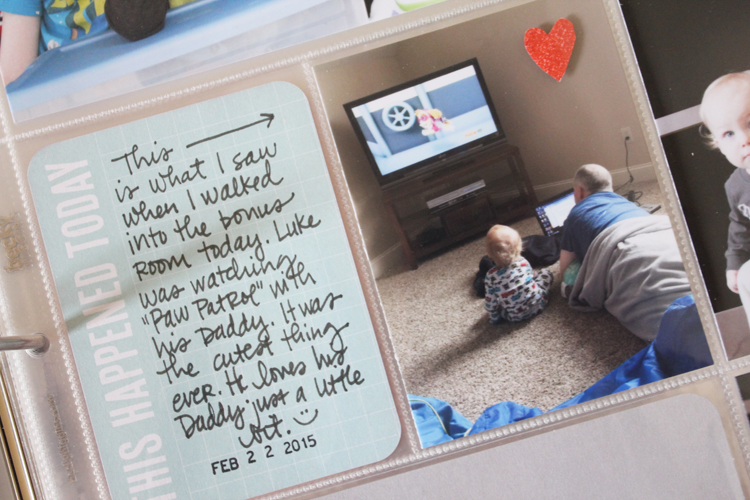 THIS HAPPENED TODAY
This
is what I saw
when I walked
into the bonus
room today. Luke
was watching
"Paw Patrol" with
his Daddy. It was
the cutest thing
ever. He loves his
Daddy just a little
bit.
FEB 22 2015